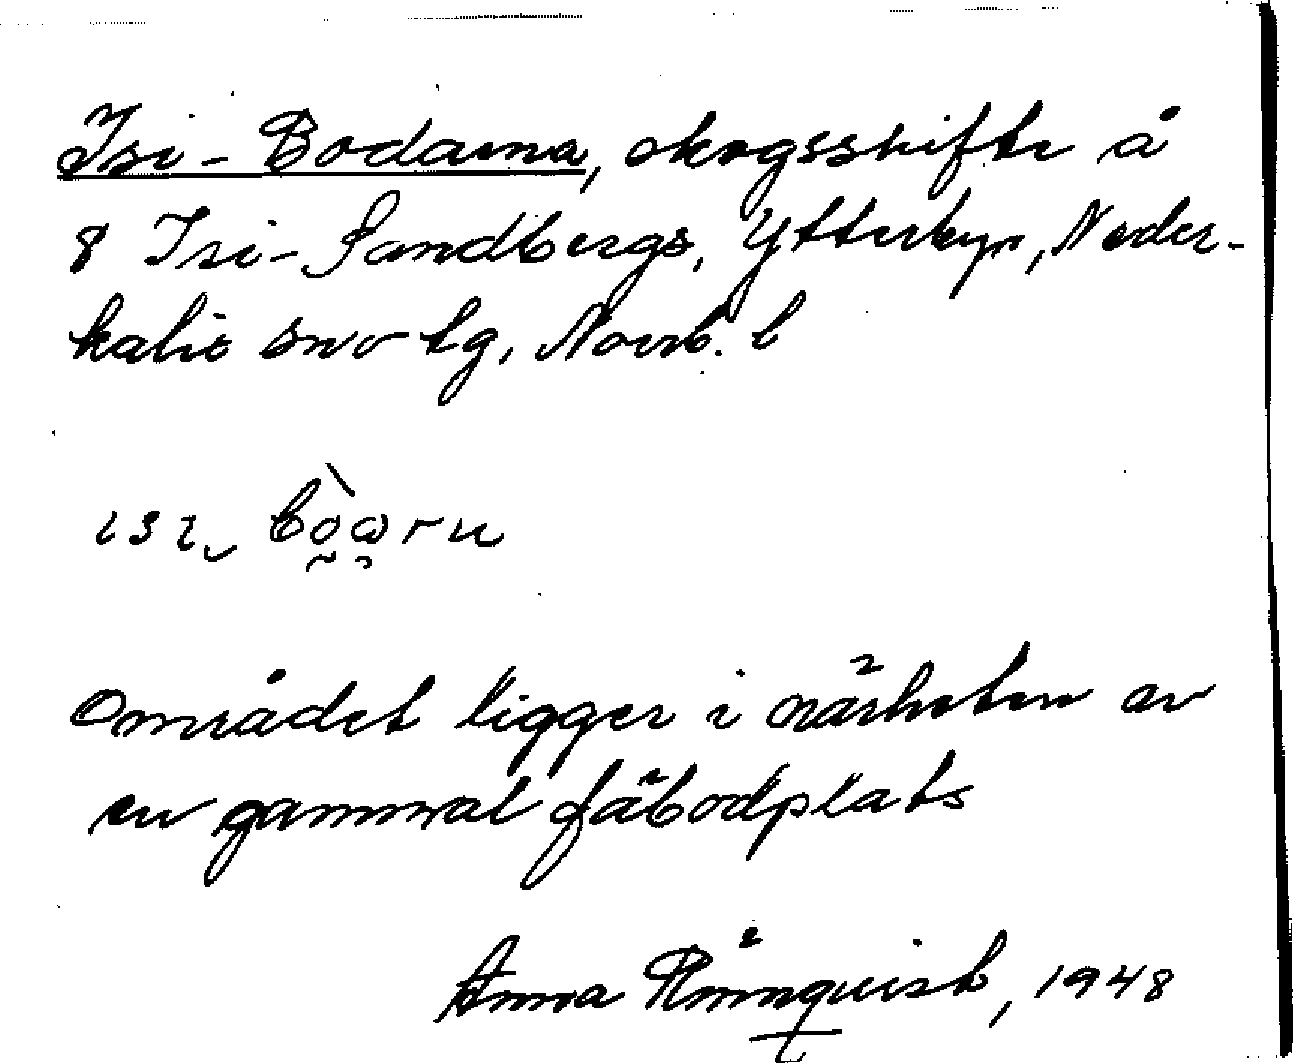 Isi-Bodarna, skogsskifte å
8 Isi-Sandbergs, Ytterbyn, Neder-
kalix sn o tg, Norrb. l
ısı bòωru
Området ligger i närheten av
en gammal fäbodplats
Anna Rönnquist, 1948